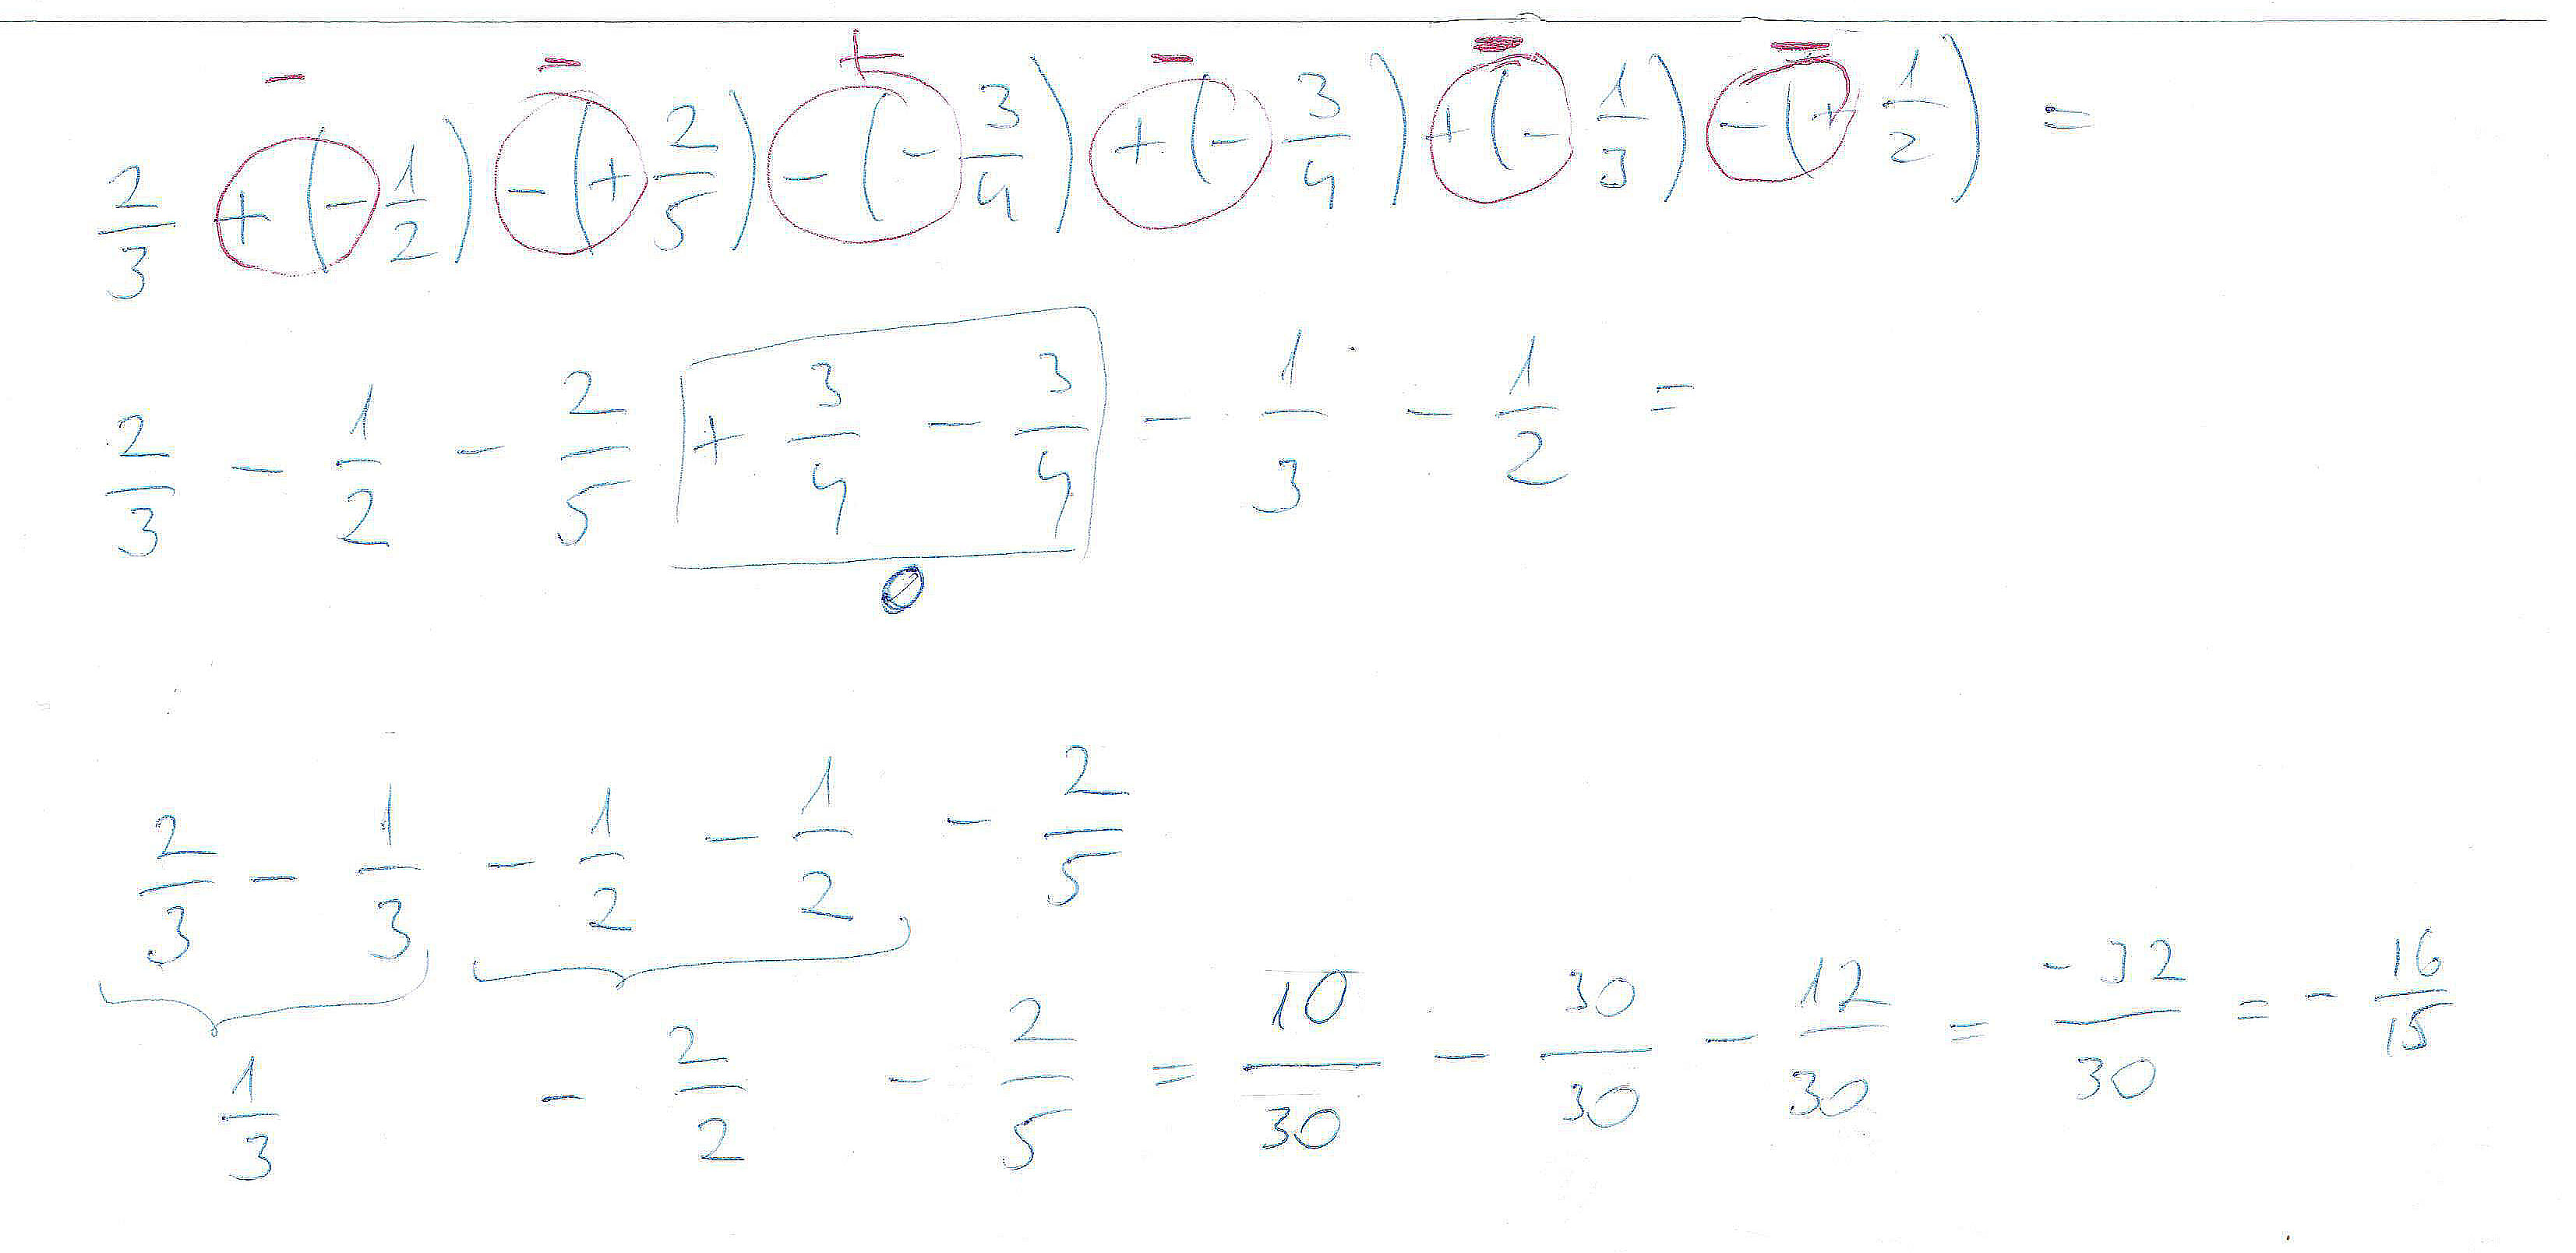 - - + - - -
2/3 + (- 1/2) - (+ 2/5) - (- 3/4) + (- 3/4) + (- 1/3) - (+ 1/2) =
2/3 - 1/2 - 2/5 + 3/4 - 3/4 - 1/3 - 1/2 =
0
2/3 - 1/3 - 1/2 - 1/2 - 2/5
1/3 - 2/2 - 2/5 = 10/30 - 30/30 - 12/30 = -32/30 = - 16/15